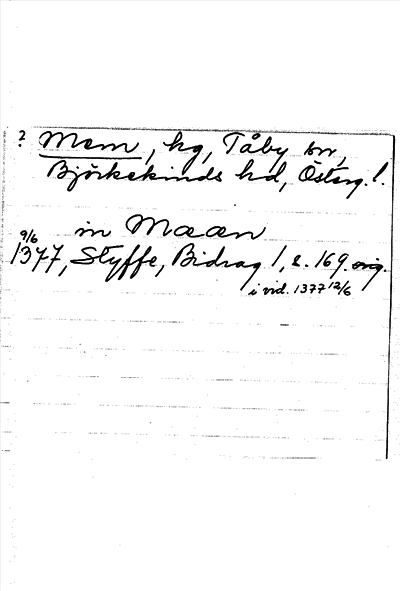 ? Mem, hg, Tåby sn,
Björkekinds hd, Österg. l.
in Maan
9/6
1377, Styffe, Bidrag 1, s. 169. orig.
i vid. 1377 12/6